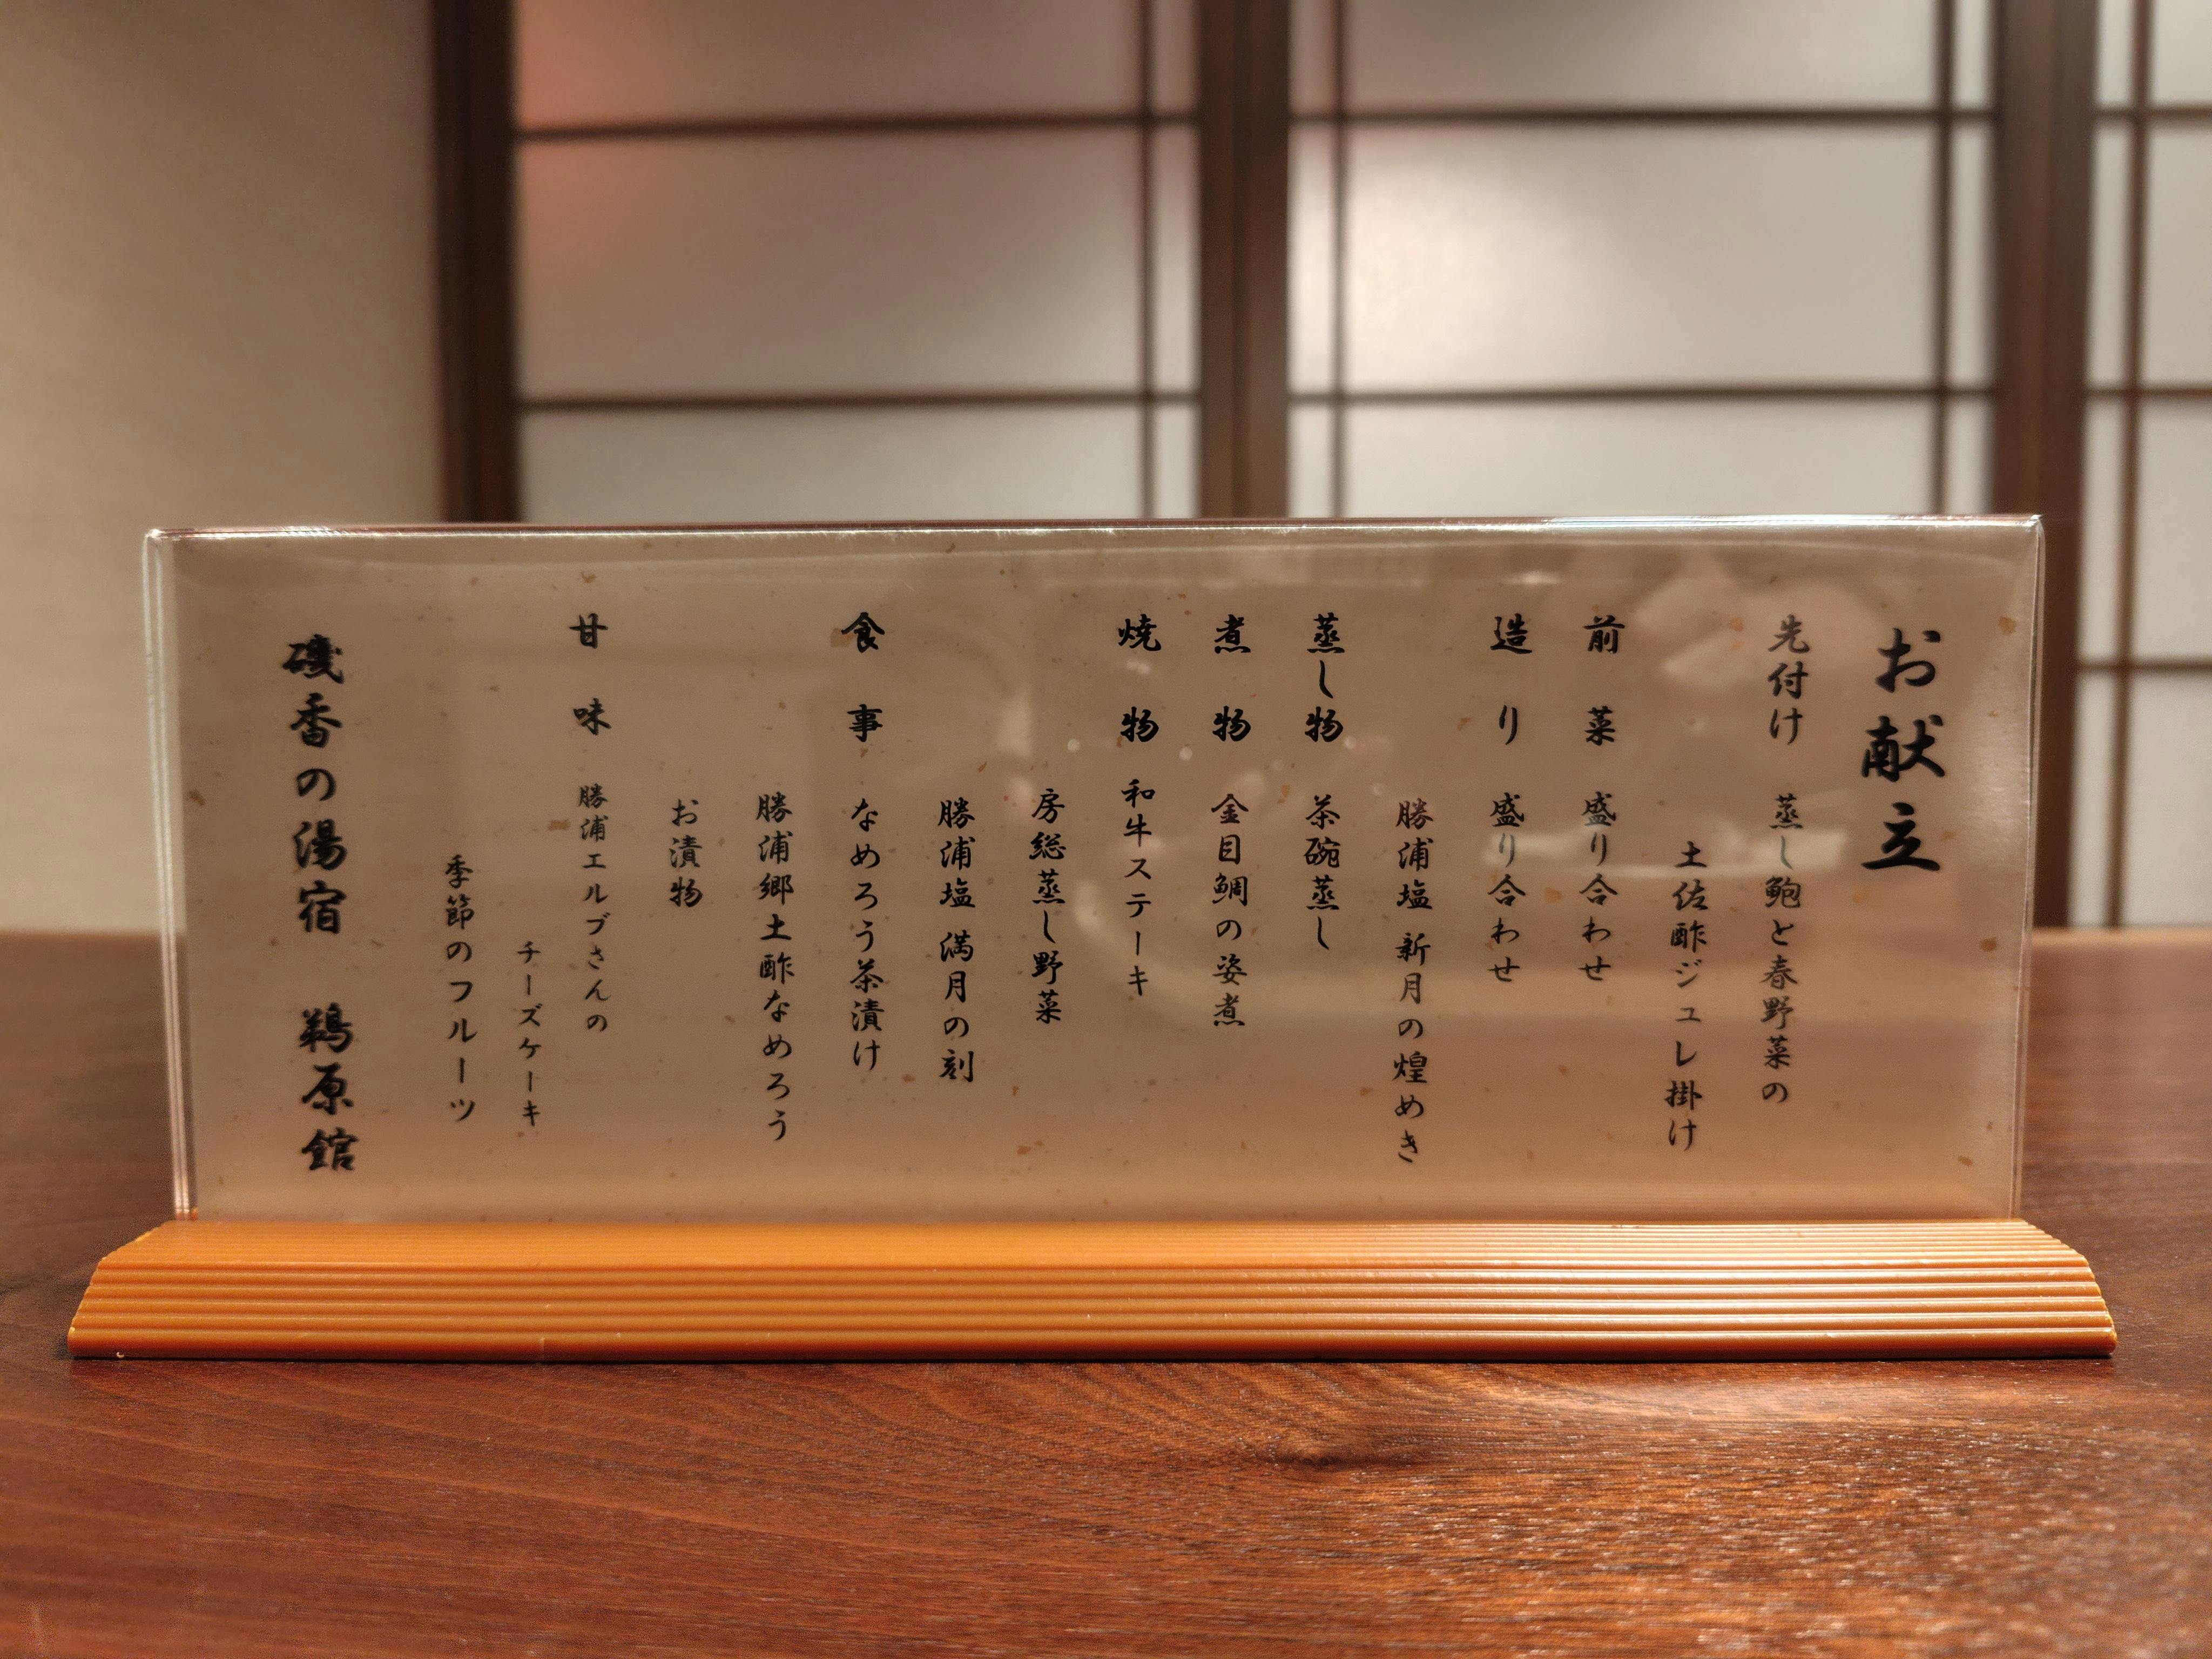 お献立
先付け 蒸し鮑と春野菜の
土佐酢ジュレ掛け
前菜 盛り合わせ
造り 盛り合わせ
勝浦塩 新月の煌めき
蒸し物 茶碗蒸し
煮物 金目鯛の姿煮
焼物 和牛ステーキ
房総蒸し野菜
勝浦塩 満月の刻
食事 なめろう茶漬け
勝浦郷土酢なめろう
お漬物
甘味 勝浦エルブさんの
チーズケーキ
季節のフルーツ
磯香の湯宿 鵜原館